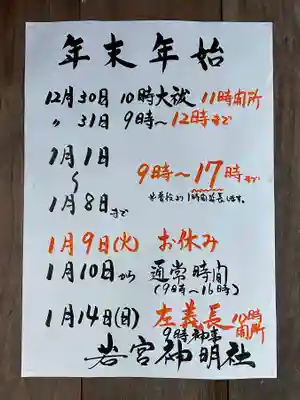 年末年始
12月30日 10時大祓 11時開所
〃 31日 9時～12時まで
1月1日
～
9時～17時まで
1月8日まで
1時間延長します。
1月9日(火) お休み
1月10日から 通常時間
(9時～16時)
1月14日(日) 左義長 10時開所
9時神事
若宮神明社